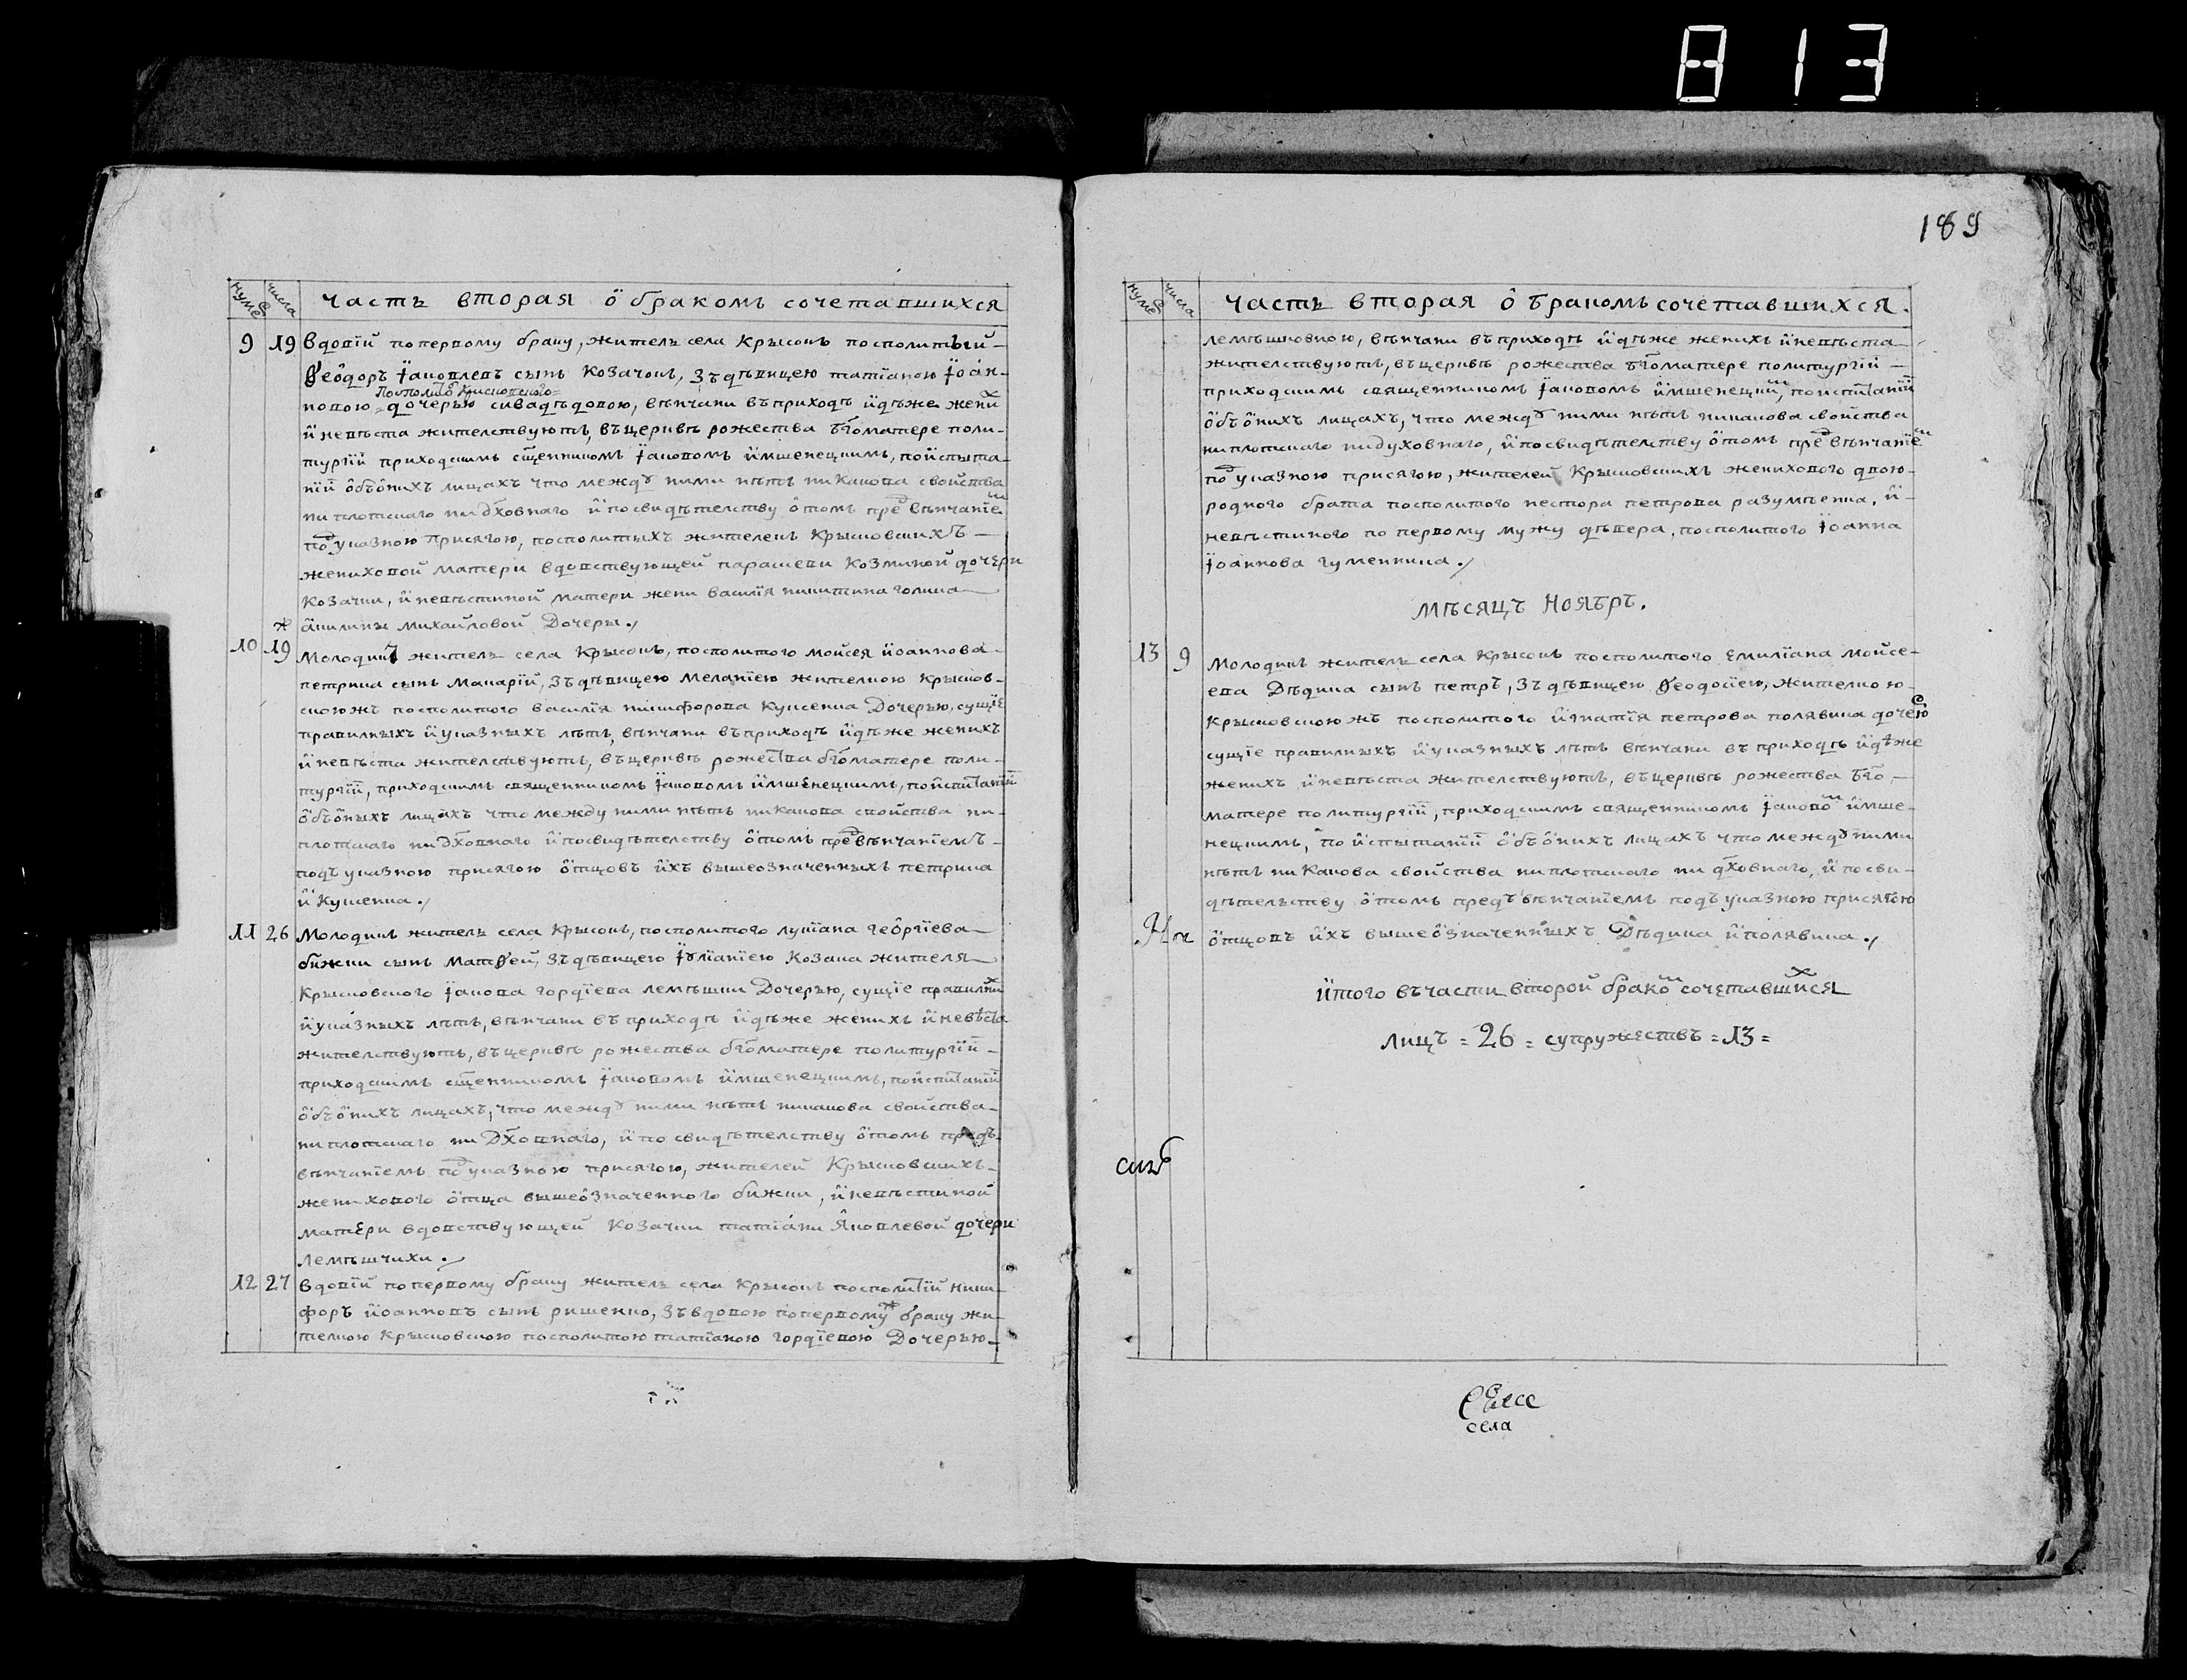 813
189
нумеръ
числа
часть вторая о бракомъ сочетавшихся
9 19 вдовій по первому браку, житель села Крысокъ посполитый
Ѳеодоръ Іаковлевъ сынъ Козачокъ, зъ дѣвицею татіаною Іоан-
Посполитого Крисковского
новою дочерью сивадѣдовою, вѣнчани въ приходѣ идѣже жених
и невѣста жителствуютъ, въ церквѣ рожества бгоматере по ли-
тургіи приходскимъ сщенникомъ Іаковомъ имшенецкимъ, по испыта-
ніи объ онихъ лицахъ что между ними нѣтъ никакова свойства
ни плотскаго ни дховнаго и по свидѣтелству о томъ пред вѣнчаніем
под указною присягою, посполитыхъ жителекъ Крысковскихъ
жениховой матери вдовствующей параскеви Козминой дочери
Козачки, и невѣстиной матери жени василія никитина голика
акилины михайловой Дочеры.
10 19 молодикъ житель села Крысокъ, посполитого мойсея иоаннова
петрика сынъ макарій, зъ дѣвицею меланіею жителкою крысков-
скою жъ посполитого василія никифорова Куценка Дочерью, сущіе
правилныхъ и указныхъ лѣтъ, вѣнчани въ приходѣ идѣже женихъ
и невѣста жителствуютъ, въ церквѣ рожества бгоматере по ли-
тургіи, приходскимъ священникомъ Іаковомъ имшенецкимъ, по испытаніи
объ оныхъ лицахъ что между ними нѣтъ никакова свойства ни
плотскаго ни дховнаго и по свидѣтелству о томъ пред вѣнчаніемъ
подъ указною присягою отцовъ ихъ вышеозначенныхъ петрика
и Куценка.
11 26 молодикъ житель села Крысокъ, посполитого лукіана георгіева
бижки сынъ матѳей, зъ дѣвицею Іуліаніею Козака жителя
Крысковского Іакова гордіева лемѣшки Дочерью, сущіе правилних
и указныхъ лѣтъ, вѣнчани въ приходѣ идѣже женихъ и невѣста
жителствуютъ, въ церквѣ рожества бгоматере по литургіи
приходскимъ сщенникомъ Іаковомъ имшенецкимъ, по испытаніи
объ онихъ лицахъ, что между ними нѣтъ никакова свойства
ни плотскаго ни Дховнаго, и по свидѣтелству о томъ предъ
вѣнчаніемъ под указною присягою, жителей Крысковскихъ
женихового отца вышеозначенного бижки, и невѣстиной
матери вдовствующей Козачки татіани Яковлевой дочери
лемѣшчихи.
12 27 вдовій по первому браку житель села Крысокъ посполитій ники-
форъ иоанновъ сынъ ришенко, зъ вдовою по первому браку жи-
телкою Крысковскою посполитою татіаною гордіевою Дочерью
нумеръ
числа
часть вторая о бракомъ сочетавшихся.
лемѣшковною, вѣнчани въ приходѣ идѣже женихъ и невѣста
жителствуютъ, въ церквѣ рожества бгоматере по литургіи
приходскимъ священникомъ Іаковомъ имшенецким, по испытаніи
объ онихъ лицахъ, что между ними нѣтъ никакова свойства
ни плотскаго ни духовнаго, и по свидѣтелству о томъ пред вѣнчаніем
под указною присягою, жителей Крысковскихъ женихового двою-
родного брата посполитого нестора петрова разумѣенка, и
невѣстиного по первому мужу дѣвера, посполитого Іоанна
Іоаннова гуменника.
мѣсяцъ Ноябръ.
13 9 молодикъ житель села Крысокъ посполитого Емиліана мойсе-
ева Дѣдика сынъ петръ, зъ дѣвицею Ѳеодосіею, жителкою
Крысковскою жъ посполитого игнатія петрова полявика дочерю
сущіе правилныхъ и указныхъ лѣтъ вѣнчани въ приходѣ идѣже
женихъ и невѣста жителствуютъ, въ церквѣ рожества бго-
матере по литургіи, приходскимъ священникомъ Іаковом имше-
нецкимъ, по испытаніи объ онихъ лицахъ что между ними
нѣтъ никакова свойства ни плотскаго ни дховнаго, и по сви-
дѣтельству о томъ предъ вѣнчаніемъ подъ указною присягою
отцовъ ихъ вышеозначеннихъ Дѣдика и полявика.
итого въ части второй браком сочетавшихся
лицъ = 26 = супружествъ = 13 =
села